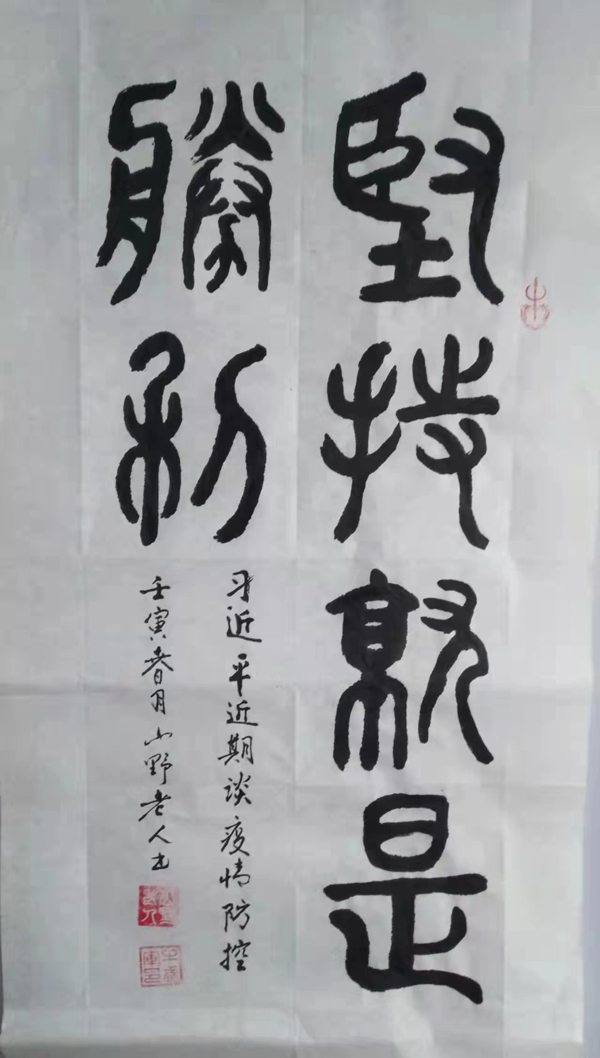 堅持就是
勝利
习近平近期谈疫情防控
壬寅春月山野老人书